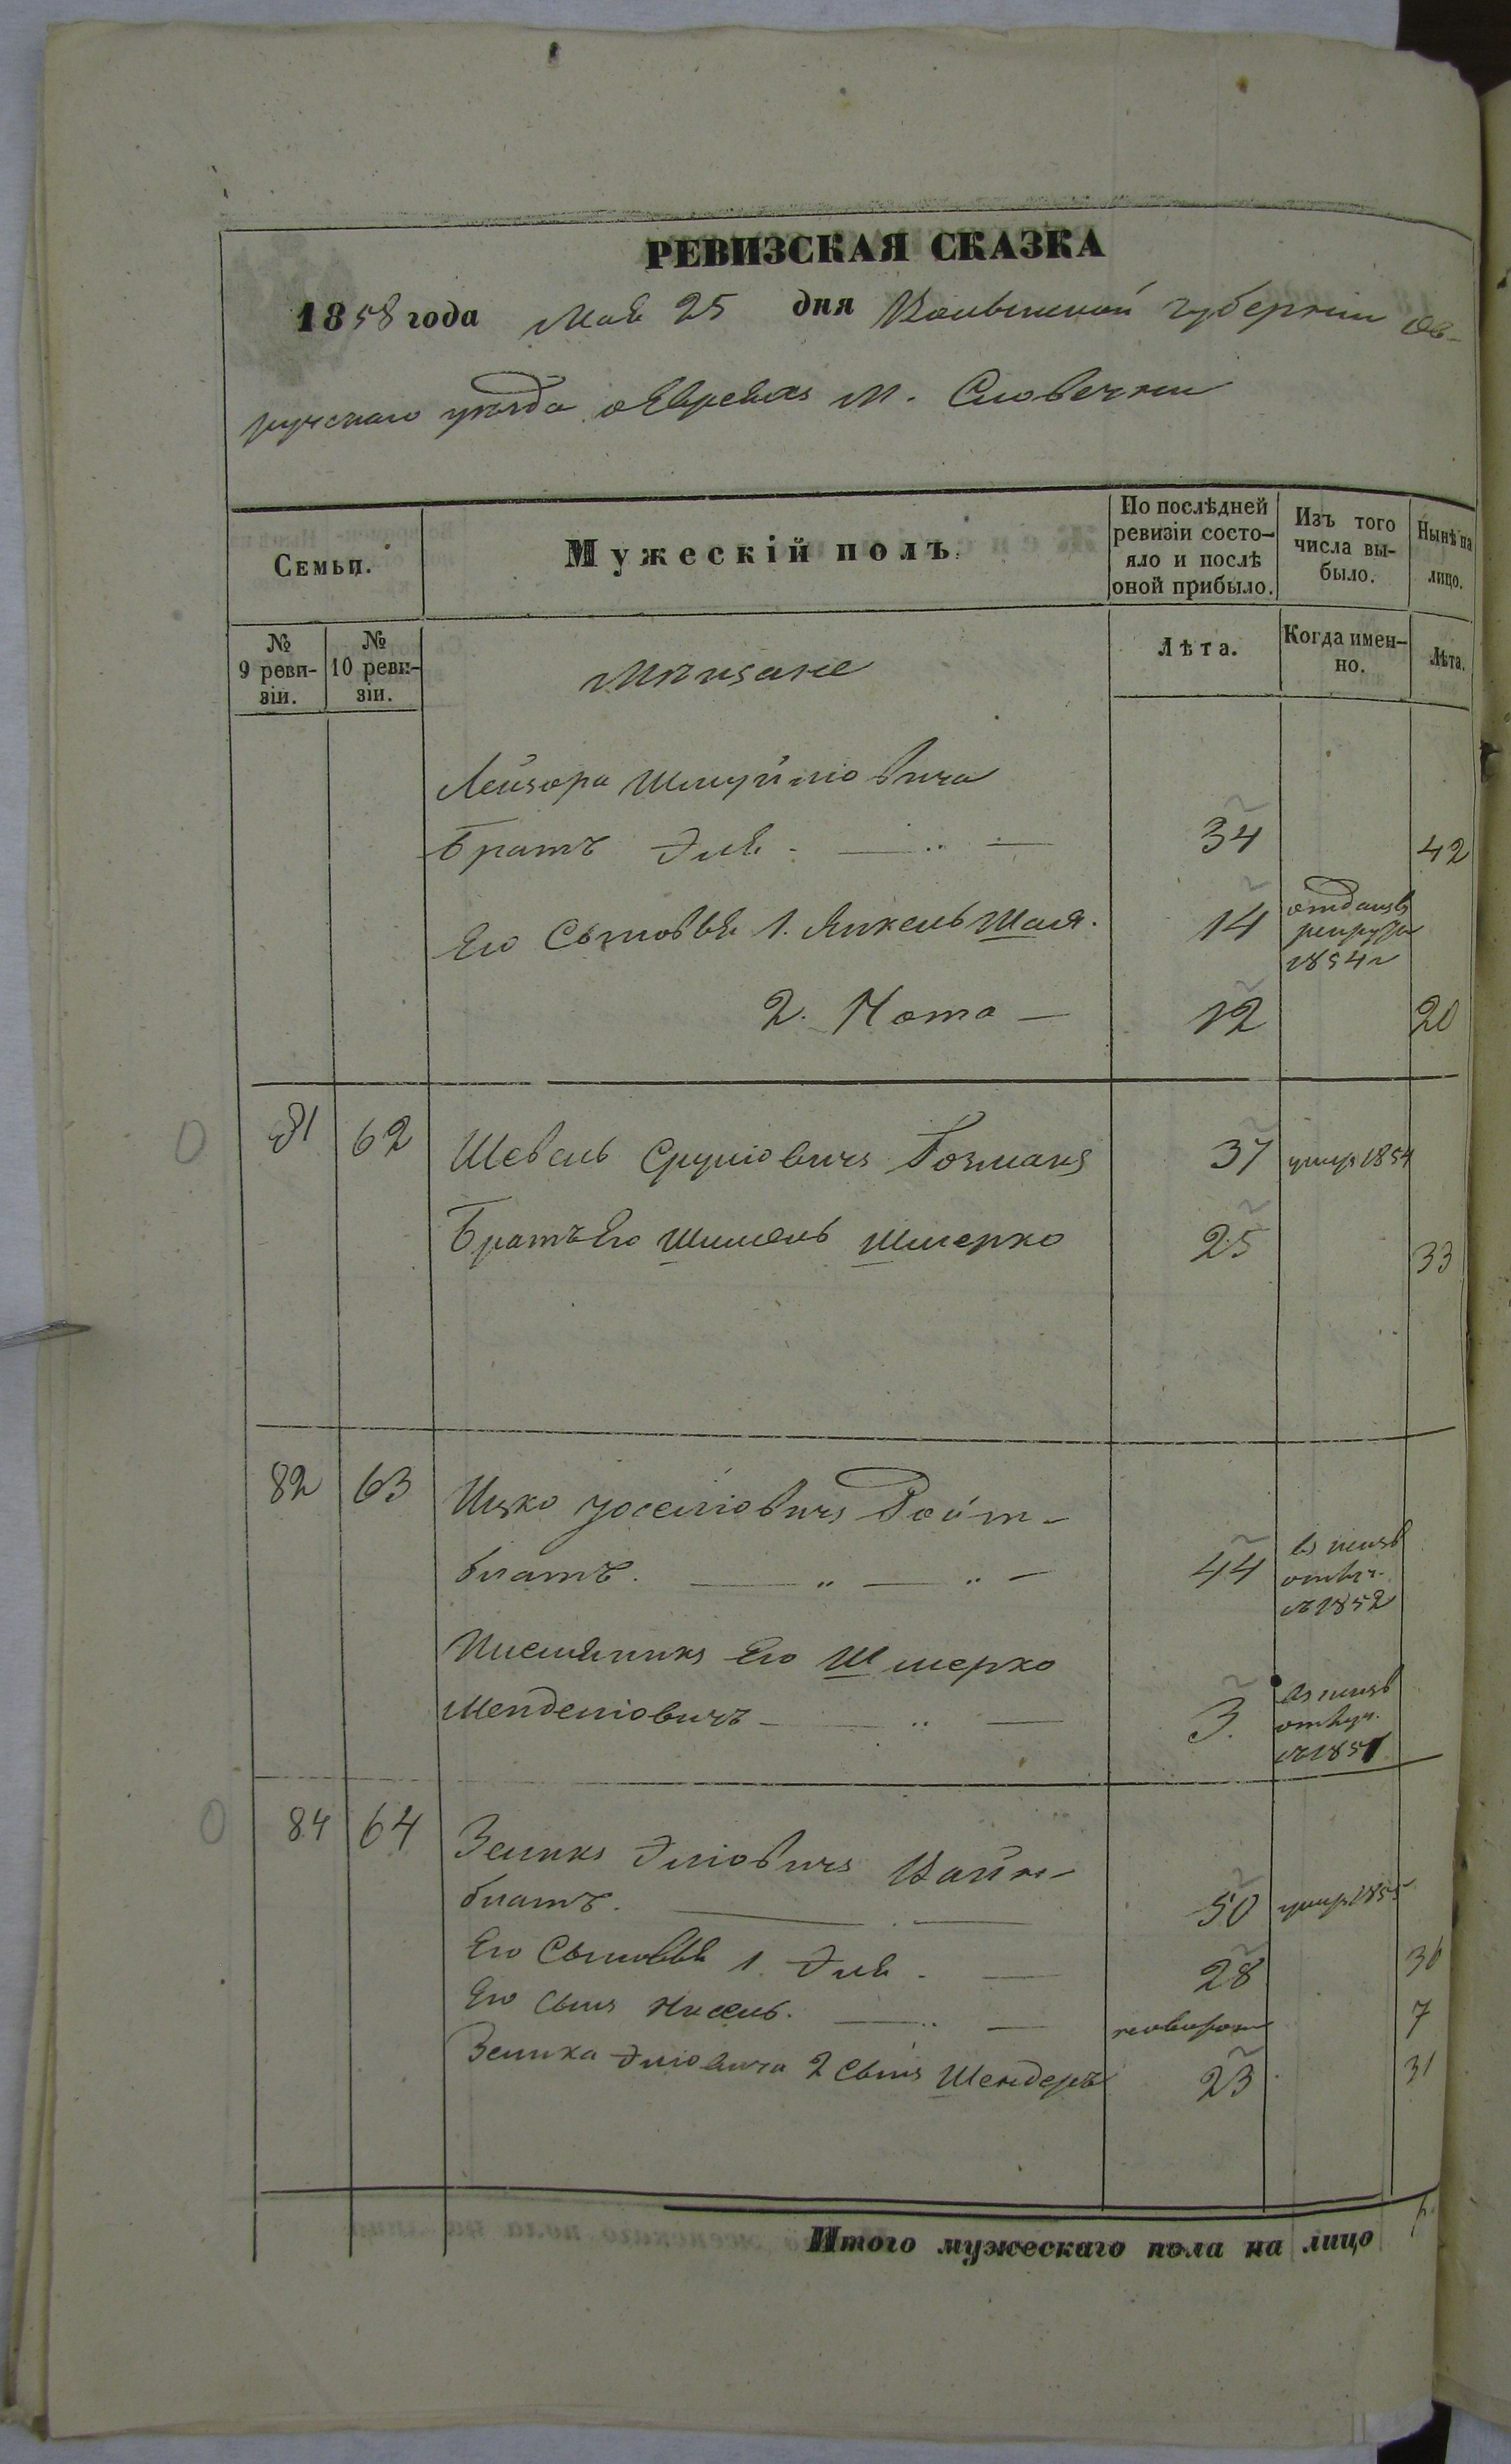 РЕВИЗСКАЯ СКАЗКА
1858 года Мая 25 дня Волынской губернiи Ов-
ручскаго уѣзда о Евреяхъ М. Словечни
Семьи.
Мужескiй полъ.
По послѣдней
ревизiи состо-
яло и послѣ
оной прибыло.
Изъ того
числа вы-
было.
Нынѣ на
лицо.
№
9 реви-
зiи.
№
10 реви-
зiи.
Мѣщане
Лѣта.
Когда имен-
но.
Лѣта.
Лейзора Шмуйловича
Братъ Эля 34 42
Его Сыновья 1. Янкель Шая. 14 отданъ въ рекруты 1854 г
2. Нота 12 20
81 62 Шевель Сруліовичъ Гозманъ 37 умер 1854
Братъ Его Шимель Шмерко 25 33
82 63 Ицко Іоселіовичъ Ройт-
блатъ. 44 въ неизв отлуч. съ 1852
Племянникъ Его Шмерко
Менделіовичъ 3. въ неизв отлуч. съ 1851
84 64 Зеликъ Эліовичъ Вайн-
блатъ. 50 умер 1855
Его Сыновья 1. Эля 28 36
Его Сынъ Нисель. новорож 7
Зелика Эліовича 2 Сынъ Шендеръ 23 31
Итого мужескаго пола на лицо